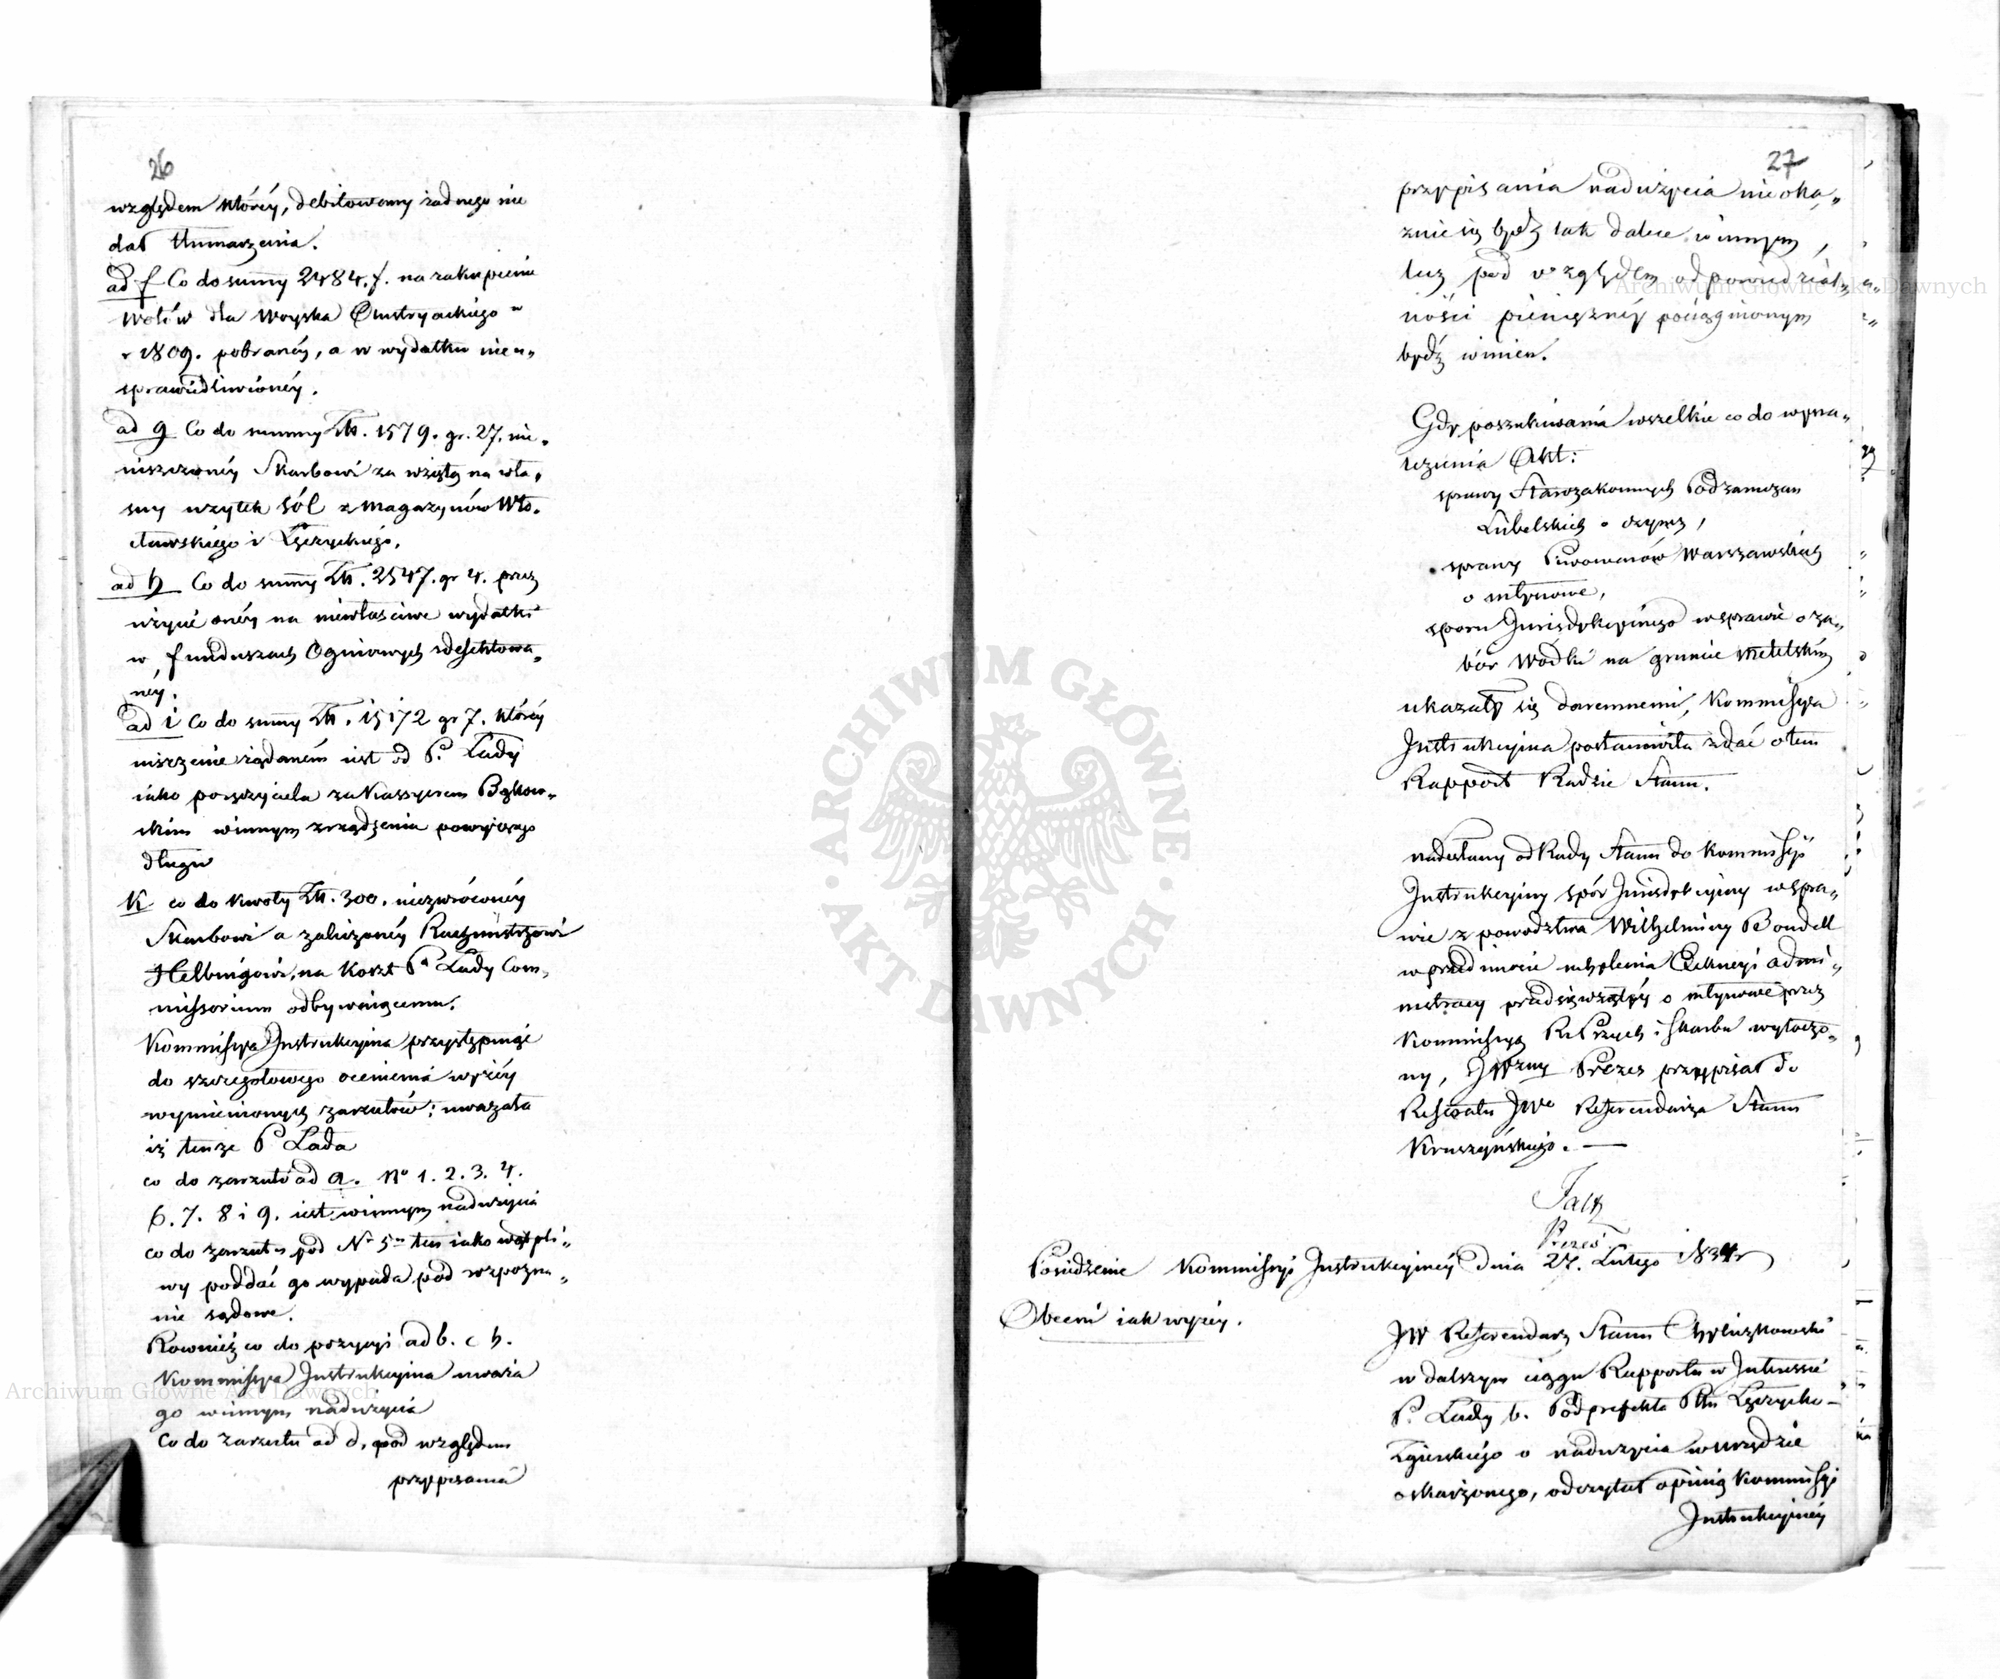 26
względem którey, debitowany żadnego nie
dał tłumaczenia.
ad f Co do summy 2484. f. na zakupienie
Wołów dla Woyska Austryackiego w
r 1809. pobraney, a w wydatku nieu„
sprawiedliwioney.
ad g Co do summy Złt. 1579. gr. 27. nie„
uiszczoney Skarbowi za wziętą na wła„
sny użytek sól z magazynów Wło„
cławskiego i Łęczyckiego.
ad h Co do summy Złt. 2547. gr 4. przez
użycie oney na niewłaściwe wydatki
w funduszach Ogniowych zdefektowa„
ney.
ad i Co do summy Złt. 15172 gr 7. którey
uiszczenie żądanem iest od P. Łady
iako poręczyciela za Kassyerem Bąkow„
skim winnym zrządzenia powyższego
długu
K co do kwoty Złt. 300. niezwróconey
Skarbowi a zaliczoney Rachmistrzowi
Helbingowi, na koszt Pa Łady Com„
missorium odbywaiącemu.
Kommissya Instrukcyina przystępuiąc
do szczegółowego ocenienia wyżey
wymienionych zarzutów; uważała
iż tenże P Łada
co do zarzutó ad a. No 1. 2. 3. 4.
6. 7. 8 i 9. iest winnym nadużycia
co do zarzutu pod Nr 5m ten iako wątpli„
wy poddać go wypada pod rozpozna„
nie sądowe.
Również co do pozycyi ad b. c h.
Kommissya Instrukcyina uważa
go winnym nadużycia
Co do zarzutu ad d, pod względem
przypisania
27
przypisania nadużycia nieoka„
zuie się bydź tak dalece winnym,
lecz pod względem odpowiedzial„
ności pieniężney pociągnionym
bydź winien.
Gdy poszukiwania wszelkie co do wyna„
lezienia Akt:
sprawy Starozakonnych Podzamczan
Lubelskich o czynsz,
sprawy Piwowarów Warszawskich
o młynowe,
sporu Jurisdykcyinego w sprawie o za„
bór Wódki na gruncie
ukazały się daremnemi, Kommissya
Instrukcyina postanowiła zdać o tem
Rapport Radzie Stanu.
nadesłany od Rady Stanu do Kommissyi
Instrukcyiny spór Jurisdykcyiny w spra„
wie z powództwa Wilhelminy Bondell
w przedmiocie uchylenia Exekucyi admi„
nistracy przedsięwziętey o młynowe przez
Kommissyą R. Przych: i Skarbu wytoczo„
ny, JWżny Prezes przypisał do
Referatu JWo Referendarza Stanu
Kruszyńskiego. —
Prezes
Posiedzenie Kommissyi Instrukcyiney dnia 27. Lutego 1834r
Obecni iak wyżey.
JW Referendarz Stanu Chyliczkowski
w dalszym ciągu Rapportu w Interessie
P. Łady b. Podprefekta Pttu Łęczycko-
Zgierskiego o nadużycia w urzędzie
oskarżonego, odczytał opinią Kommissyi
Instrukcyiney